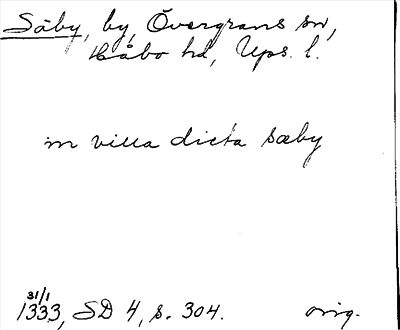 Säby, by, Övergrans sn,
Håbo hd, Upps. l.
in villa dicta sæby
31/1
1333, SD 4, s. 304. orig.